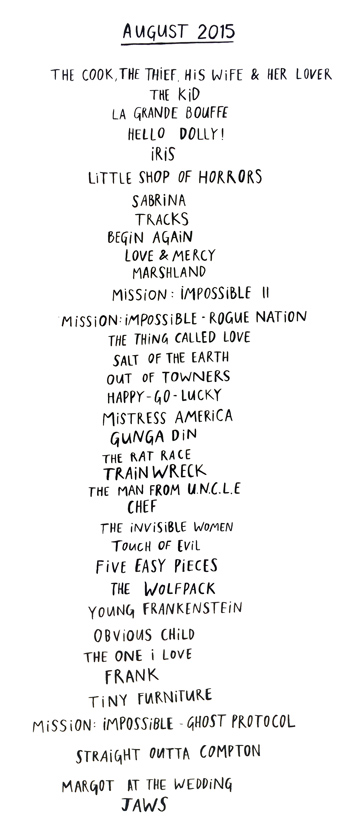 AUGUST 2015
THE COOK, THE THIEF, HIS WIFE & HER LOVER
THE KID
LA GRANDE BOUFFE
HELLO DOLLY!
IRIS
LITTLE SHOP OF HORRORS
SABRINA
TRACKS
BEGIN AGAIN
LOVE & MERCY
MARSHLAND
MISSION: IMPOSSIBLE II
MISSION: IMPOSSIBLE - ROGUE NATION
THE THING CALLED LOVE
SALT OF THE EARTH
OUT OF TOWNERS
HAPPY-GO-LUCKY
MISTRESS AMERICA
GUNGA DIN
THE RAT RACE
TRAINWRECK
THE MAN FROM U.N.C.L.E
CHEF
THE INVISIBLE WOMEN
TOUCH OF EVIL
FIVE EASY PIECES
THE WOLFPACK
YOUNG FRANKENSTEIN
OBVIOUS CHILD
THE ONE I LOVE
FRANK
TINY FURNITURE
MISSION: IMPOSSIBLE - GHOST PROTOCOL
STRAIGHT OUTTA COMPTON
MARGOT AT THE WEDDING
JAWS